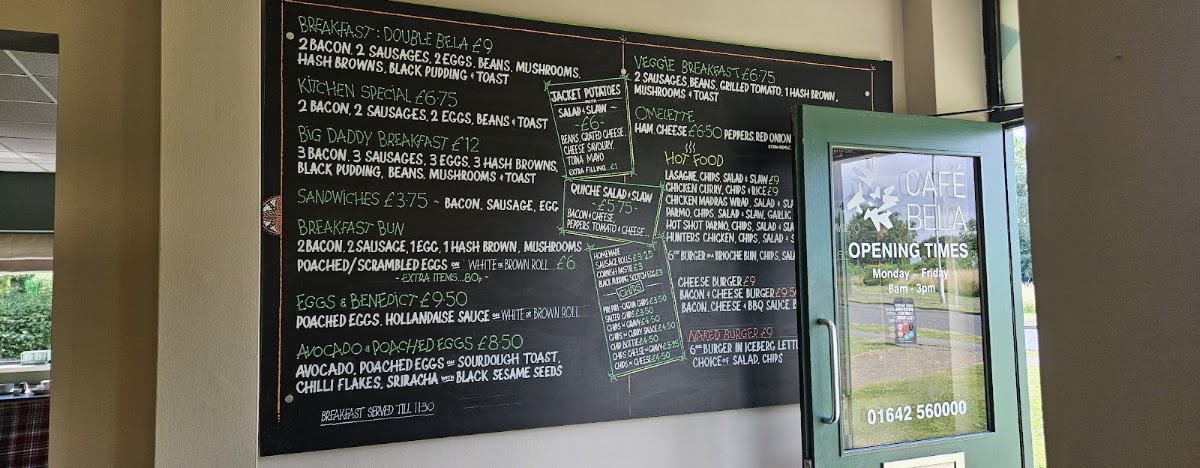 BREAKFAST: DOUBLE BELA £9
2 BACON, 2 SAUSAGES, 2 EGGS, BEANS, MUSHROOMS,
HASH BROWNS, BLACK PUDDING & TOAST
KITCHEN SPECIAL £6·75
2 BACON, 2 SAUSAGES, 2 EGGS, BEANS & TOAST
BIG DADDY BREAKFAST £12
3 BACON, 3 SAUSAGES, 3 EGGS, 3 HASH BROWNS,
BLACK PUDDING, BEANS, MUSHROOMS & TOAST
SANDWICHES £3·75 ~ BACON, SAUSAGE, EGG
BREAKFAST BUN
2 BACON, 2 SAUSAGE, 1 EGG, 1 HASH BROWN, MUSHROOMS
POACHED/SCRAMBLED EGGS ON WHITE OR BROWN ROLL £6
- EXTRA ITEMS... 80p -
EGGS & BENEDICT £9·50
POACHED EGGS, HOLLANDAISE SAUCE ON WHITE OR BROWN ROLL
AVOCADO & POACHED EGGS £8·50
AVOCADO, POACHED EGGS ON SOURDOUGH TOAST,
CHILLI FLAKES, SRIRACHA WITH BLACK SESAME SEEDS
BREAKFAST SERVED TILL 11:30
JACKET POTATOES
WITH
SALAD & SLAW ~
~£6~
BEANS, GRATED CHEESE,
CHEESE SAVOURY,
TUNA MAYO
EXTRA FILLING... £1
QUICHE SALAD & SLAW
~£5·75~
BACON & CHEESE
PEPPERS, TOMATO & CHEESE...
HOMEMADE
SAUSAGE ROLLS £3·25
CORNISH PASTIE £3
BLACK PUDDING SCOTCH EGG £3
CHIPS
SALTED CHIPS £3·50
CHIPS & GRAVY £4·50
CHIPS & CURRY SAUCE £4·50
CHIP BUTTIE £4·50
CHIPS, CHEESE & GRAVY £5·25
CHIPS & CHEESE £4·50
VEGGIE BREAKFAST £6·75
2 SAUSAGES, BEANS, GRILLED TOMATO, 1 HASH BROWN,
MUSHROOMS & TOAST
OMELETTE
HAM, CHEESE £6·50 PEPPERS, RED ONION
HOT FOOD
LASAGNE, CHIPS, SALAD & SLAW £9
CHICKEN CURRY, CHIPS & RICE £9
CHICKEN MADRAS WRAP, SALAD & SLA
PARMO, CHIPS, SALAD & SLAW, GARLIC
HOT SHOT PARMO, CHIPS, SALAD & SL
HUNTERS CHICKEN, CHIPS, SALAD & S
6oz BURGER IN A BRIOCHE BUN, CHIPS, SALA
CHEESE BURGER £9
BACON & CHEESE BURGER £9·50
BACON, CHEESE & BBQ SAUCE B
NAKED BURGER £9
6oz BURGER IN ICEBERG LETTU
CHOICE OF SALAD, CHIPS
CAFÉ
BELA
OPENING TIMES
Monday - Friday
8am - 3pm
01642 560000